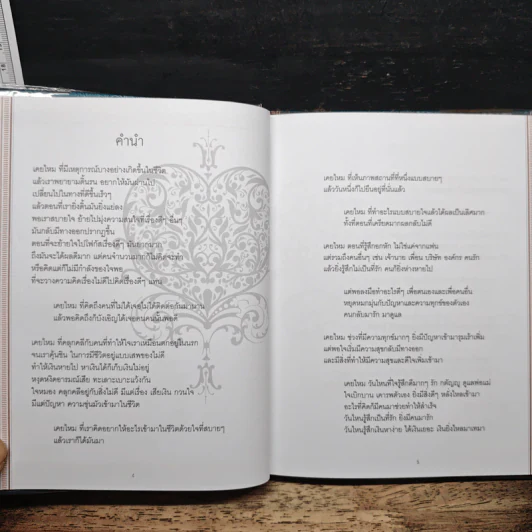 คำนำ
เคยไหม ที่มีเหตุการณ์บางอย่างเกิดขึ้นในชีวิต
แล้วเราพยายามดิ้นรน อยากให้มันผ่านไป
เปลี่ยนไปในทางที่ดีขึ้นเร็วๆ
แล้วตอนที่เรายิ่งดิ้นมันยิ่งแย่ลง
พอเราสบายใจ ย้ายไปมุ่งความสนใจที่เรื่องดีๆ อื่นๆ
มันกลับมีทางออกปรากฏขึ้น
ตอนที่จะย้ายใจไปโฟกัสเรื่องดีๆ มันยากมาก
ถึงมันจะได้ผลดีมาก แต่คนจำนวนมากก็ไม่ค่อยจะทำ
หรือคิดแต่ก็ไม่มีกำลังของใจพอ
ที่จะวางความคิดเรื่องไม่ดีไปคิดเรื่องดีๆ แทน
เคยไหม ที่คิดถึงคนที่ไม่ได้เจอไม่ได้ติดต่อกันมานาน
แล้วพอคิดถึงก็บังเอิญได้เจอคนคนนั้นพอดี
เคยไหม ที่คลุกคลีกับคนที่ทำให้ใจเราเหมือนตกอยู่ในนรก
จนเราคุ้นชิน ในการมีชีวิตอยู่แบบเสพของไม่ดี
ทำให้เงินหายไป หาเงินได้ก็เก็บเงินไม่อยู่
หงุดหงิดอารมณ์เสีย ทะเลาะเบาะแว้งกัน
ใจหมอง คลุกคลีอยู่กับสิ่งไม่ดี มีแต่เรื่อง เสียเงิน กวนใจ
มีแต่ปัญหา ความขุ่นมัวเข้ามาในชีวิต
เคยไหม ที่เราคิดอยากให้อะไรเข้ามาในชีวิตด้วยใจที่สบายๆ
แล้วเราก็ได้มันมา
เคยไหม ที่เห็นภาพสถานที่ที่หนึ่งแบบสบายๆ
แล้ววันหนึ่งก็ไปยืนอยู่ที่นั่นแล้ว
เคยไหม ที่ทำอะไรแบบสบายใจแล้วได้ผลเป็นเลิศมาก
ทั้งที่ตอนที่เครียดมากผลกลับไม่ดี
เคยไหม ตอนที่รู้สึกอกหัก ไม่ใช่แค่จากแฟน
แต่รวมถึงคนอื่นๆ เช่น เจ้านาย เพื่อน บริษัท องค์กร คนรัก
แล้วยิ่งรู้สึกไม่เป็นที่รัก คนก็ยิ่งห่างหายไป
แต่พอลงมือทำอะไรดีๆ เพื่อตนเองและเพื่อคนอื่น
หยุดหมกมุ่นกับปัญหาและความทุกข์ของตัวเอง
คนกลับมารัก มาดูแล
เคยไหม ช่วงที่มีความทุกข์มากๆ ยิ่งมีปัญหาเข้ามารุมเร้าเพิ่ม
แต่พอใจเริ่มมีความสุขกลับมีทางออก
และมีสิ่งที่ทำให้มีความสุขและดีใจเพิ่มเข้ามา
เคยไหม วันไหนที่ใจรู้สึกดีมากๆ รัก กตัญญู ดูแลพ่อแม่
ใจเบิกบาน เคารพตัวเอง ยิ่งมีสิ่งดีๆ หลั่งไหลเข้ามา
อะไรที่คิดก็มีคนมาช่วยทำให้สำเร็จ
วันไหนรู้สึกเป็นที่รัก ยิ่งมีคนมารัก
วันไหนรู้สึกเงินหาง่าย ได้เงินเยอะ เงินยิ่งไหลมาเทมา